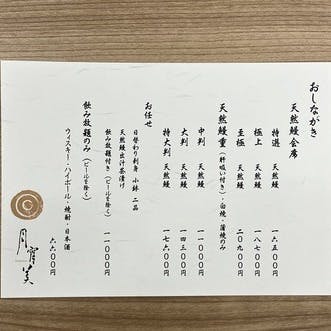 おしながき
天然鰻会席
特選 天然鰻 一六五〇〇円
極上 天然鰻 一八七〇〇円
至極 天然鰻 二〇九〇〇円
天然鰻重(肝吸い付き)・白焼・蒲焼のみ
中判 天然鰻 一一〇〇〇円
大判 天然鰻 一四三〇〇円
特大判 天然鰻 一七六〇〇円
お任せ
日替わり刺身 小鉢 二品
天然鰻出汁茶漬け
飲み放題付き(ビールを除く) 一一〇〇〇円
飲み放題のみ(ビールを除く)
ウィスキー・ハイボール・焼酎・日本酒 六六〇〇円